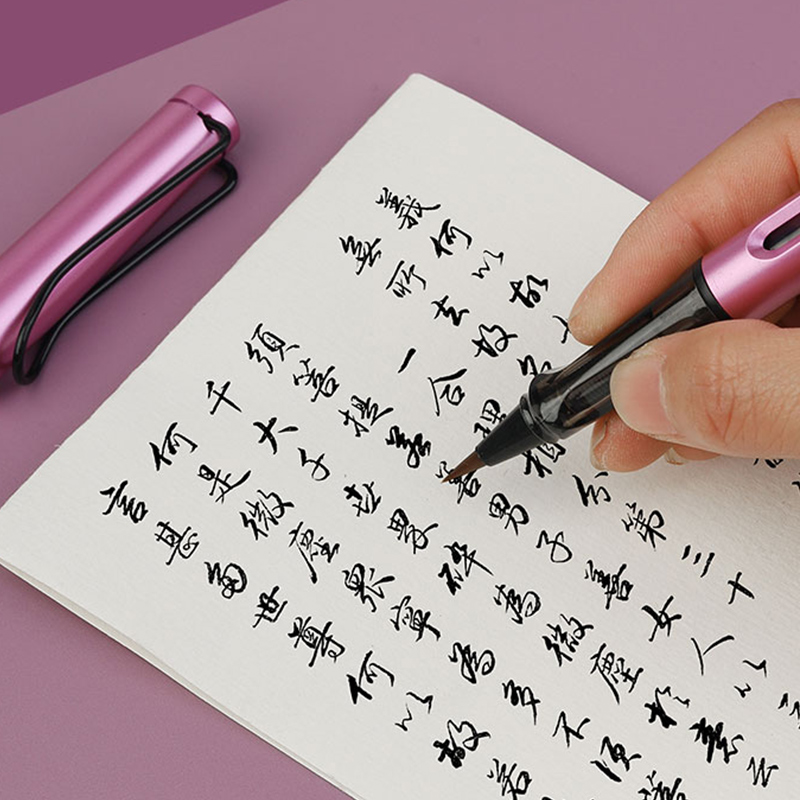 義何以故
無所去故
一合理相分第三十
須菩提若善男子善女人以三
千大千世界碎為微塵於意云
何是微塵眾寧為多不須菩
言甚多世尊何以故若